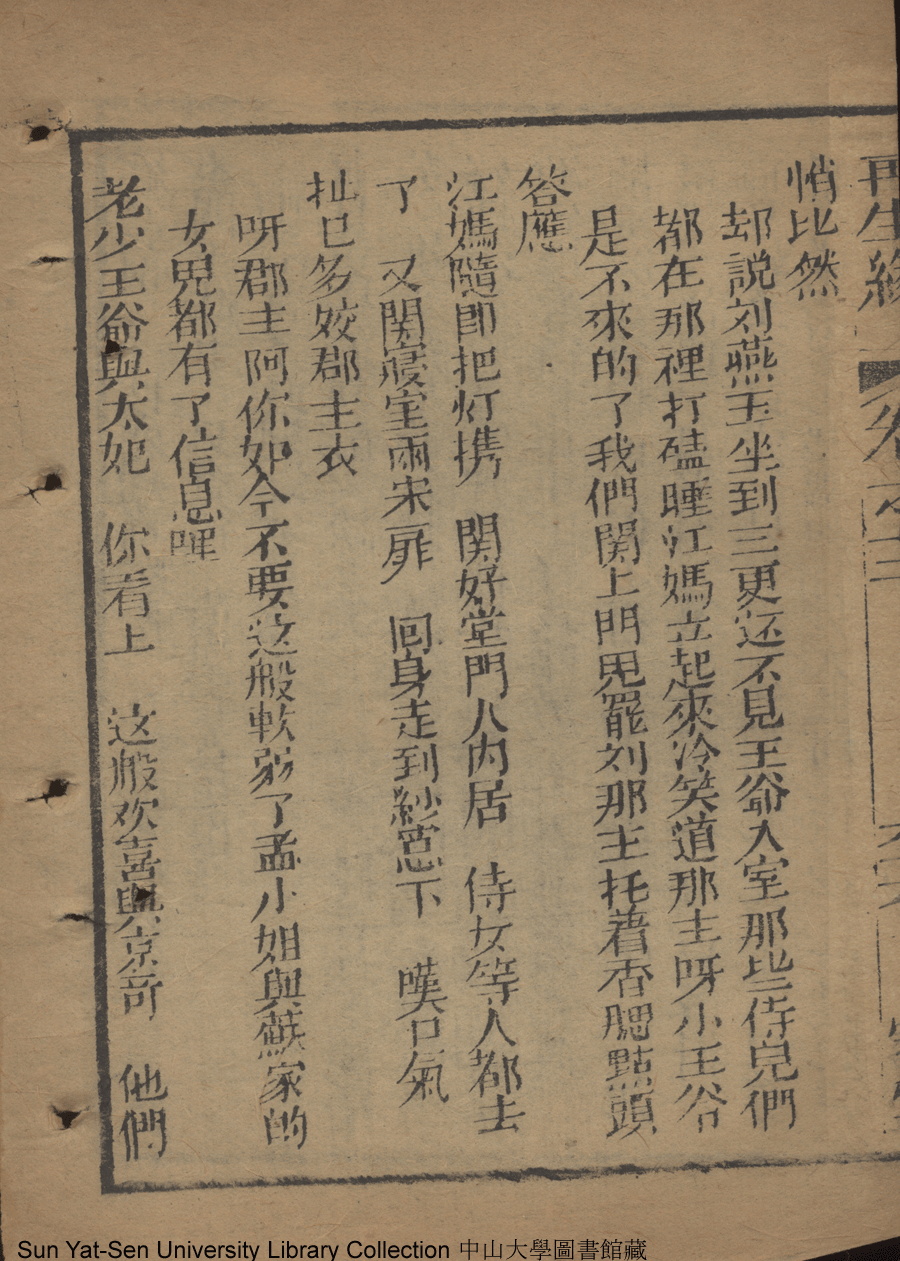 再生緣
悄比然
却説刘燕玉坐到三更还不見王爺入室那些侍兒們
都在那裡打磕睡江媽立起來冷笑道那主呀小王爷
是不來的了我們関上門兒罷刘那主托着香腮點頭
答應
江媽隨即把灯携　関好堂門入内居　侍女等人都去
了　又関寢室兩宋扉　回身走到紗窓下　嘆口氣
扯已多姣郡主衣
呀郡主阿你如今不要这般軟弱了孟小姐與蘇家的
女兒都有了信息哩
老少王爺與太妃　你看上　这般欢喜與京奇　他們
Sun Yat-Sen University Library Collection 中山大學圖書館藏